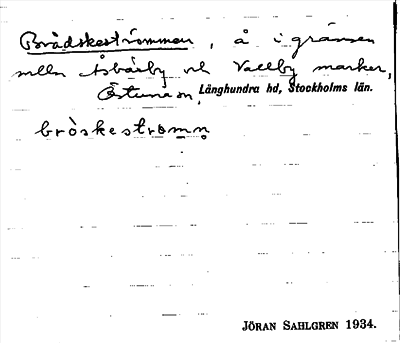 Brådskeströmmen, å i gränsen
mlln Åsbärby och Vallby marker,
Östuna sn, Långhundra hd, Stockholms län.
bròskestrømn
JÖRAN SAHLGREN 1934.